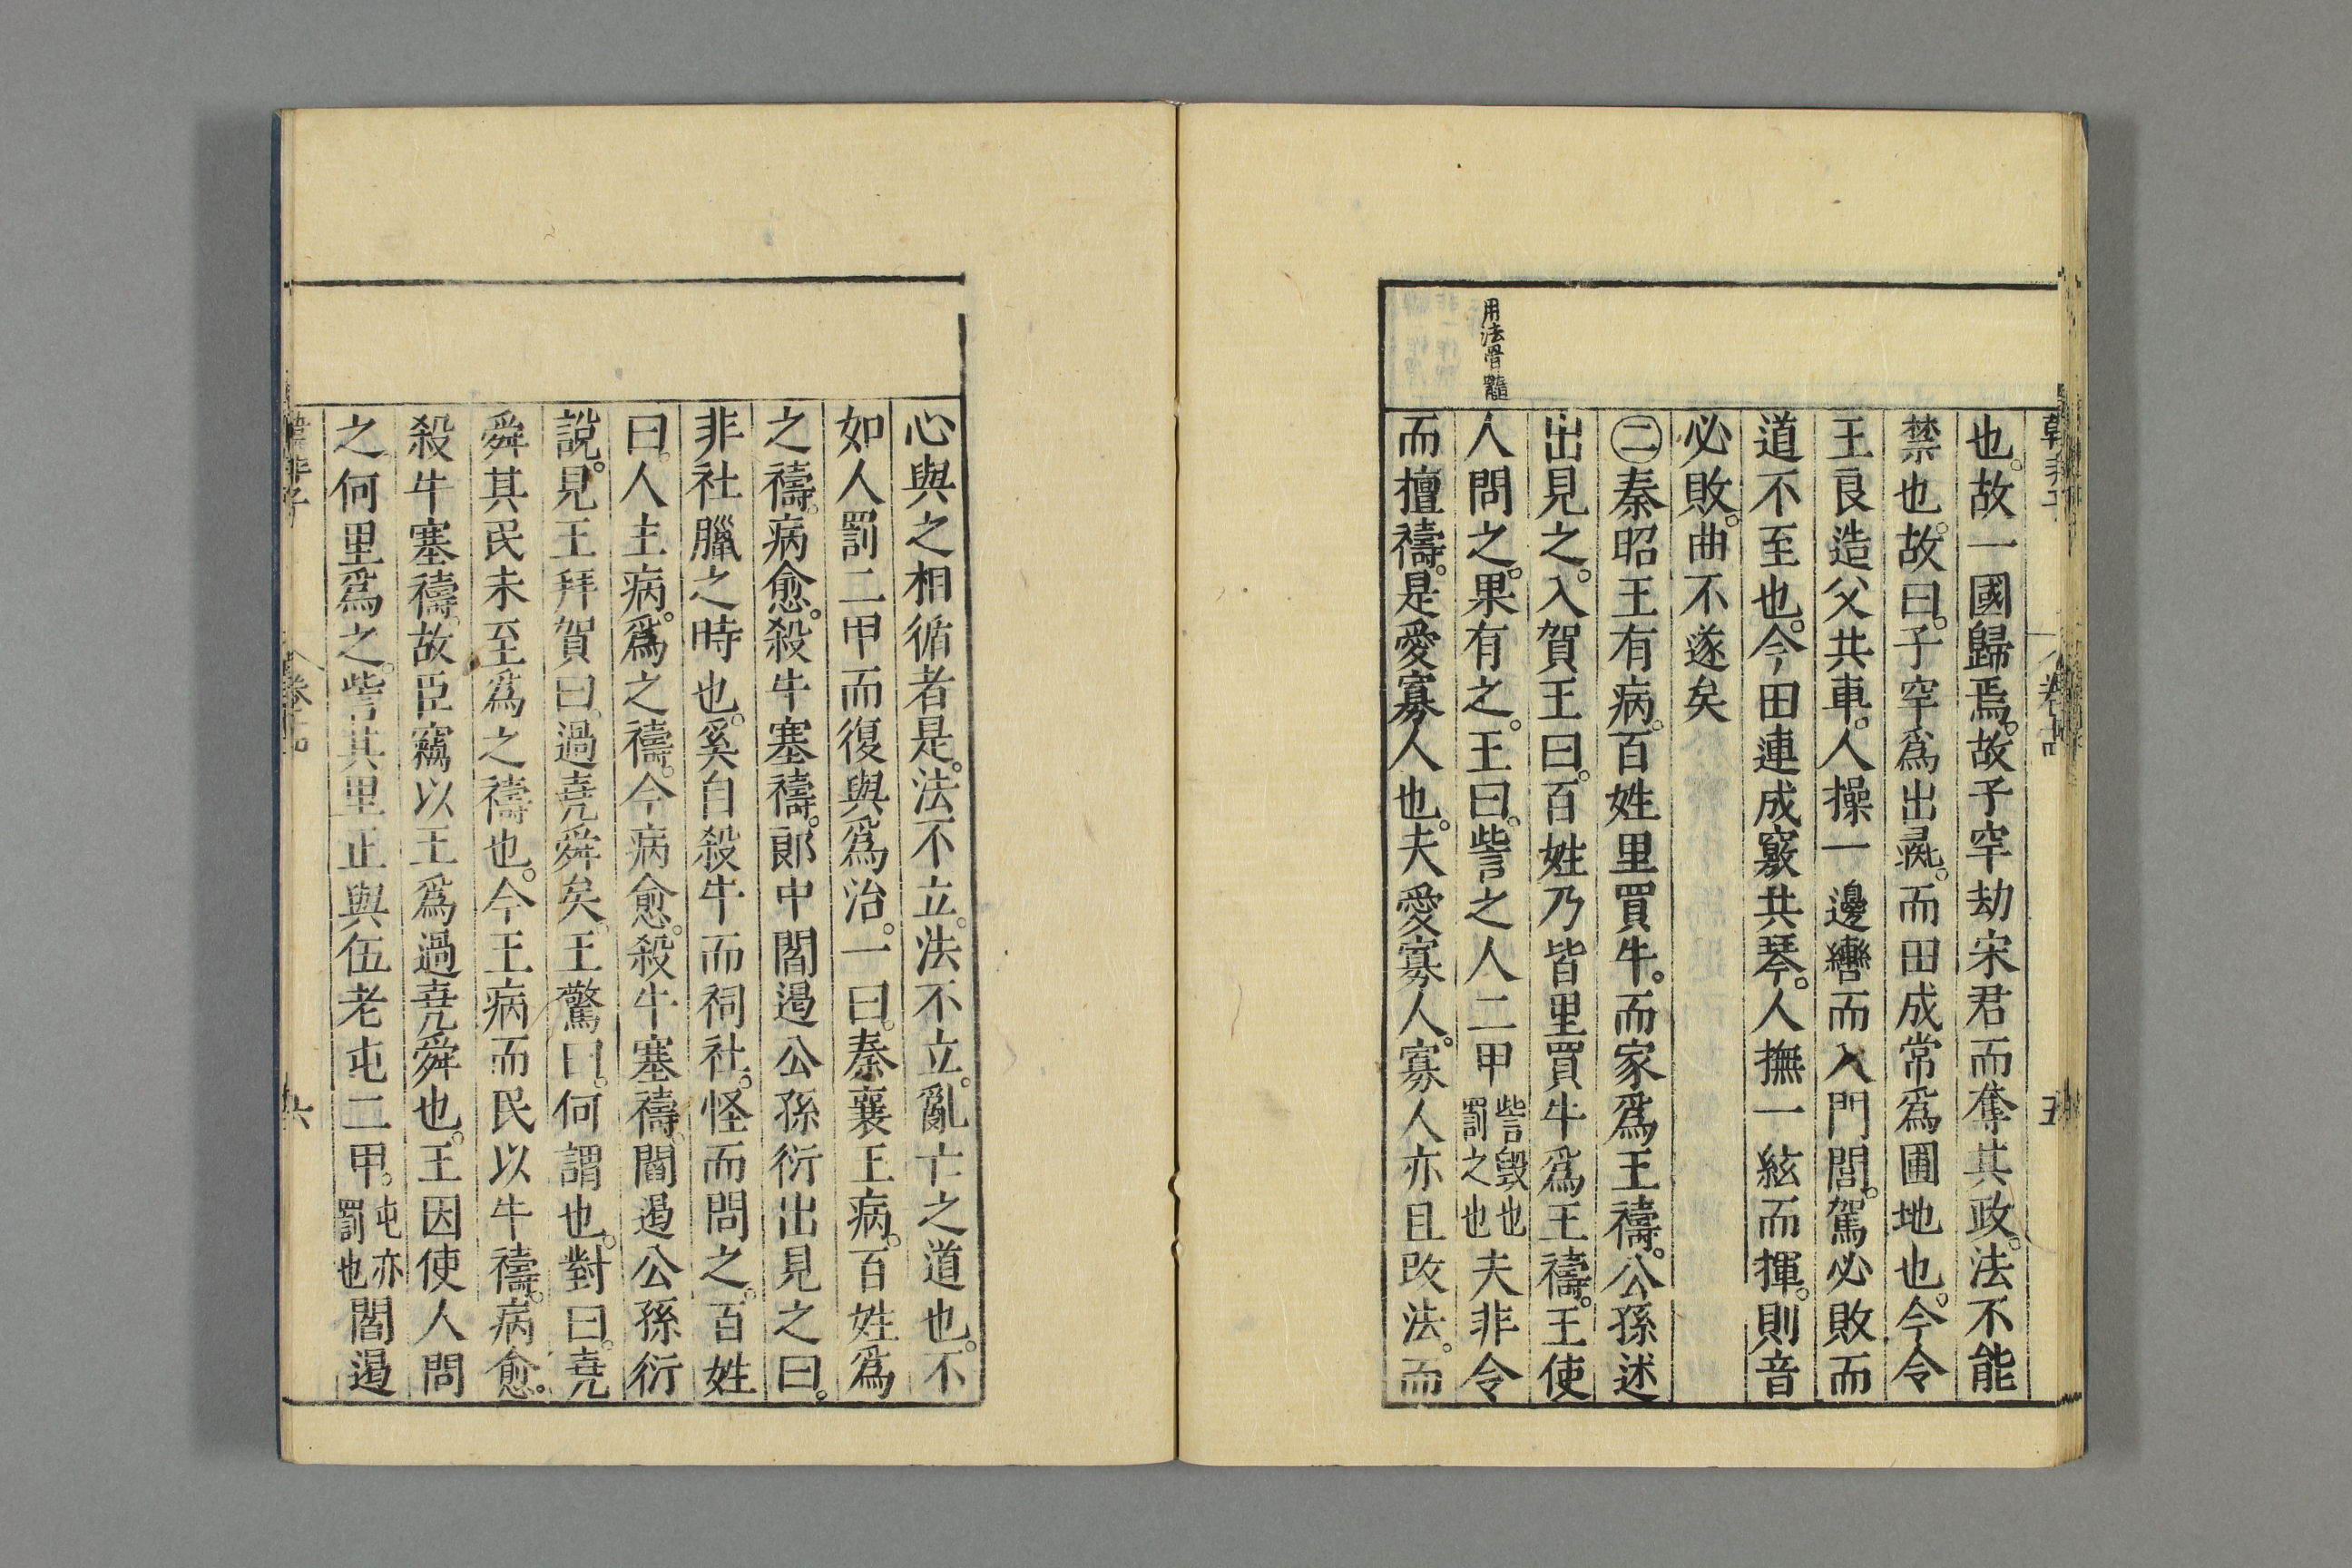 也。故一國歸焉。故子罕劫宋君而奪其政。法不能
禁也。故曰。子罕爲出彘。而田成常爲圃地也。今令
王良造父共車。人操一邊轡而入門閭。駕必敗而
道不至也。今田連成竅共琴。人撫一絃而揮。則音
必敗。曲不遂矣
㊁秦昭王有病。百姓里買牛。而家爲王禱。公孫述
出見之。入賀王曰。百姓乃皆里買牛爲王禱。王使
用法骨髓
人問之。果有之。王曰。訾之人二甲訾毀也罰之也夫非令
而擅禱。是愛寡人也。夫愛寡人。寡人亦且改法。而
心與之相循者是。法不立。法不立。亂亡之道也。不
如人罰二甲而復與爲治。一曰。秦襄王病。百姓爲
之禱。病愈。殺牛塞禱。郎中閻遏公孫衍出見之曰。
非社臘之時也。奚自殺牛而祠社。怪而問之。百姓
曰。人主病。爲之禱。今病愈。殺牛塞禱。閻遏公孫衍
說。見王拜賀曰。過堯舜矣。王驚曰。何謂也。對曰。堯
舜其民未至爲之禱也。今王病而民以牛禱。病愈。
殺牛塞禱。故臣竊以王爲過堯舜也。王因使人問
之。何里爲之。訾其里正與伍老屯二甲。屯亦罰也閻遏